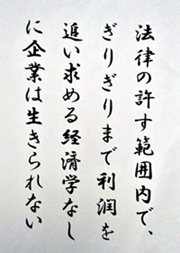 法律の許す範囲内で、
ぎりぎりまで利潤を
追い求める経済学なし
に企業は生きられない